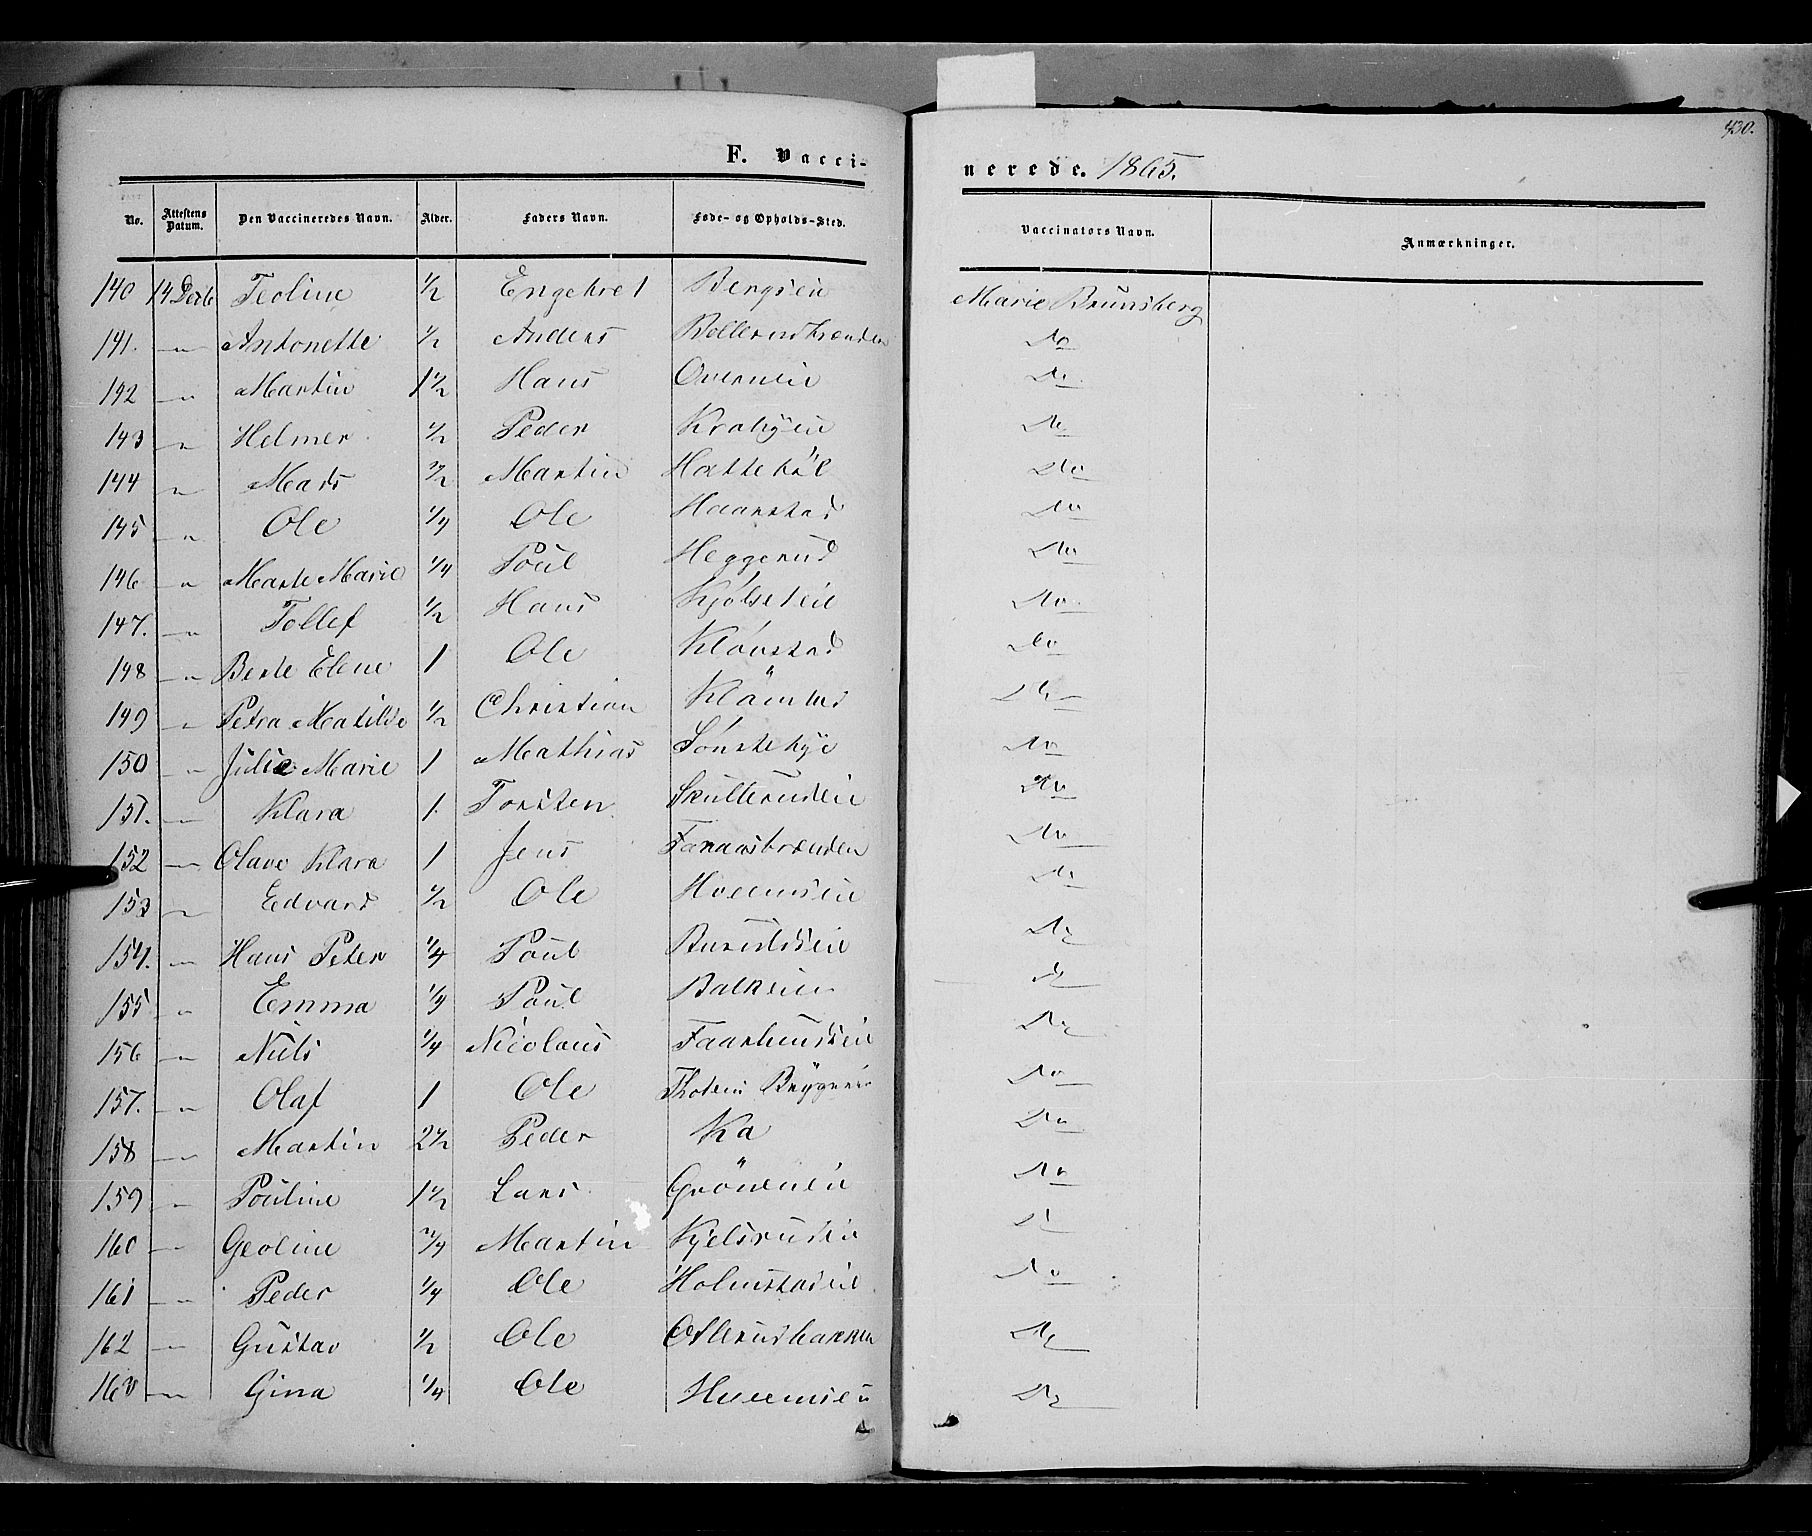 430.
F. Vacci-nerede. 1865.
No. Attestens Datum. Den Vaccineredes Navn. Alder. Faders Navn. Føde- og Opholds-Sted. Vaccinators Navn. Anmærkninger.
140 14 Decb Teoline 1/2 Engebret Bergseie Marie Brunsberg
141. " Antonette 1/2 Anders Do
142 " Martin 1 1/2 Hans Overneie Do
143 " Helmer 1/2 Peder Krabyeie Do
144 " Mads Martin Do
145 " Ole 1/4 Ole Haarstad Do
146 " Marte Marie 1/4 Poul Heggerud Do
147. " Tollef 1/2 Hans Kjølseteie Do
148 " Berte Elene 1 Ole Kløvstad Do
149 " Petra Matilde 1/2 Christian Do
150 " Julie Marie 1 Mathias Sønstebye Do
151. " Klara 1. Torsten Skullerudeie Do
152 " Olave Klara 1 Jens Faraasbrænden Do
153 " Edvard 1/2 Ole Hveemseie Do
154. " Hans Peter 1/4 Poul Do
155 " Emma 1/4 Poul Balkeeie Do
156 " Nils 1/4 Nicolaus Faarlundseie Do
157. " Olaf 1 Ole Do
158 " Martin 2 1/2 Peder Ka Do
159 " Pouline 1 1/2 Lars Grøneneie Do
160 " Geoline 3/4 Martin Kjelsrudeie Do
161 " Peder 1/4 Ole Holmstadeie Do
162 " Gustav 1/2 Ole Do
163 " Gina 1/4 Ole Hveemseie Do